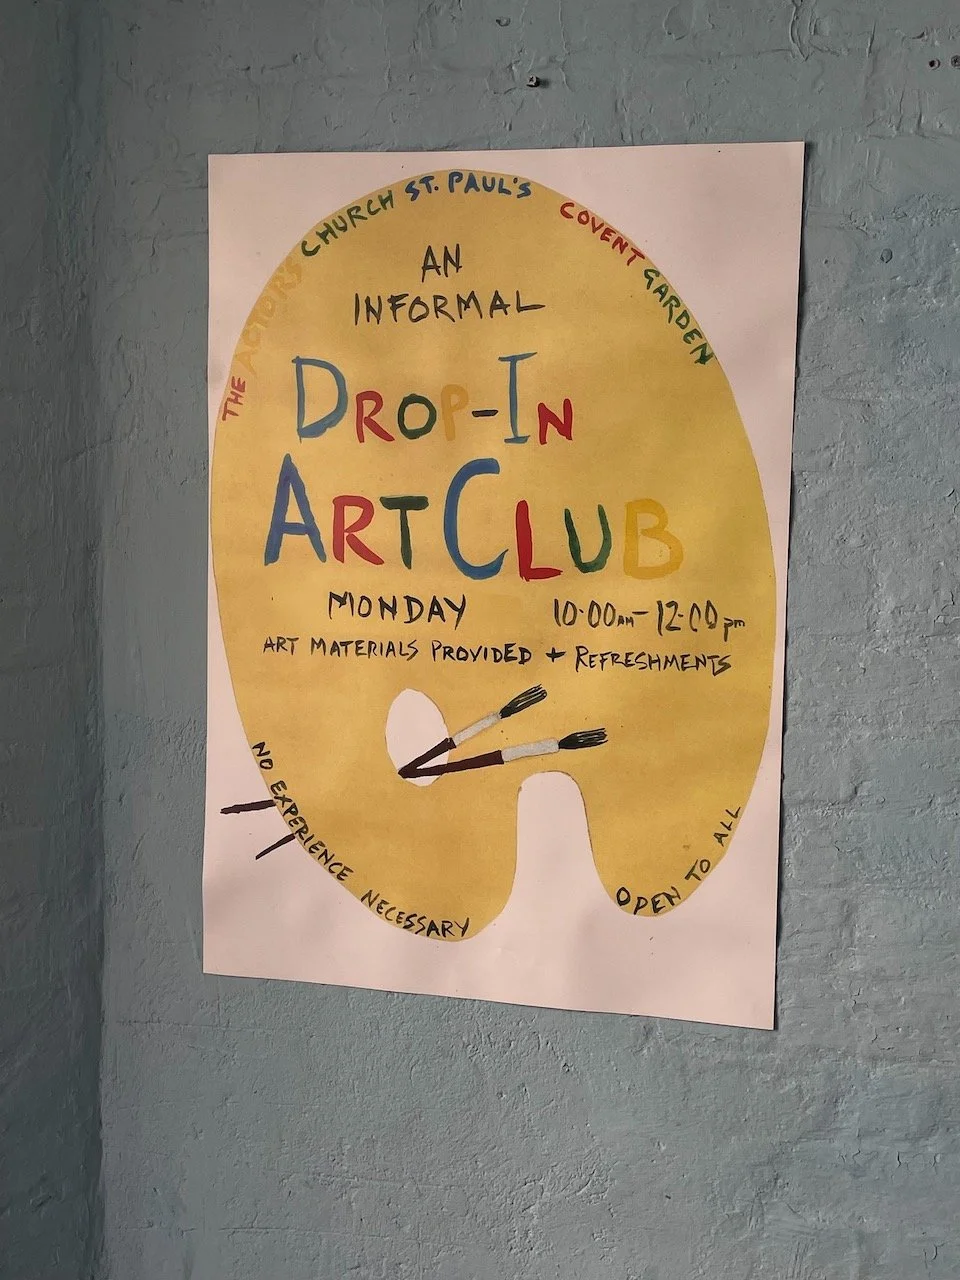 THE ACTORS CHURCH ST. PAUL'S COVENT GARDEN
AN
INFORMAL
DROP-IN
ART CLUB
MONDAY 10·00AM-12:00pm
ART MATERIALS PROVIDED + REFRESHMENTS
NO EXPERIENCE NECESSARY
OPEN TO ALL